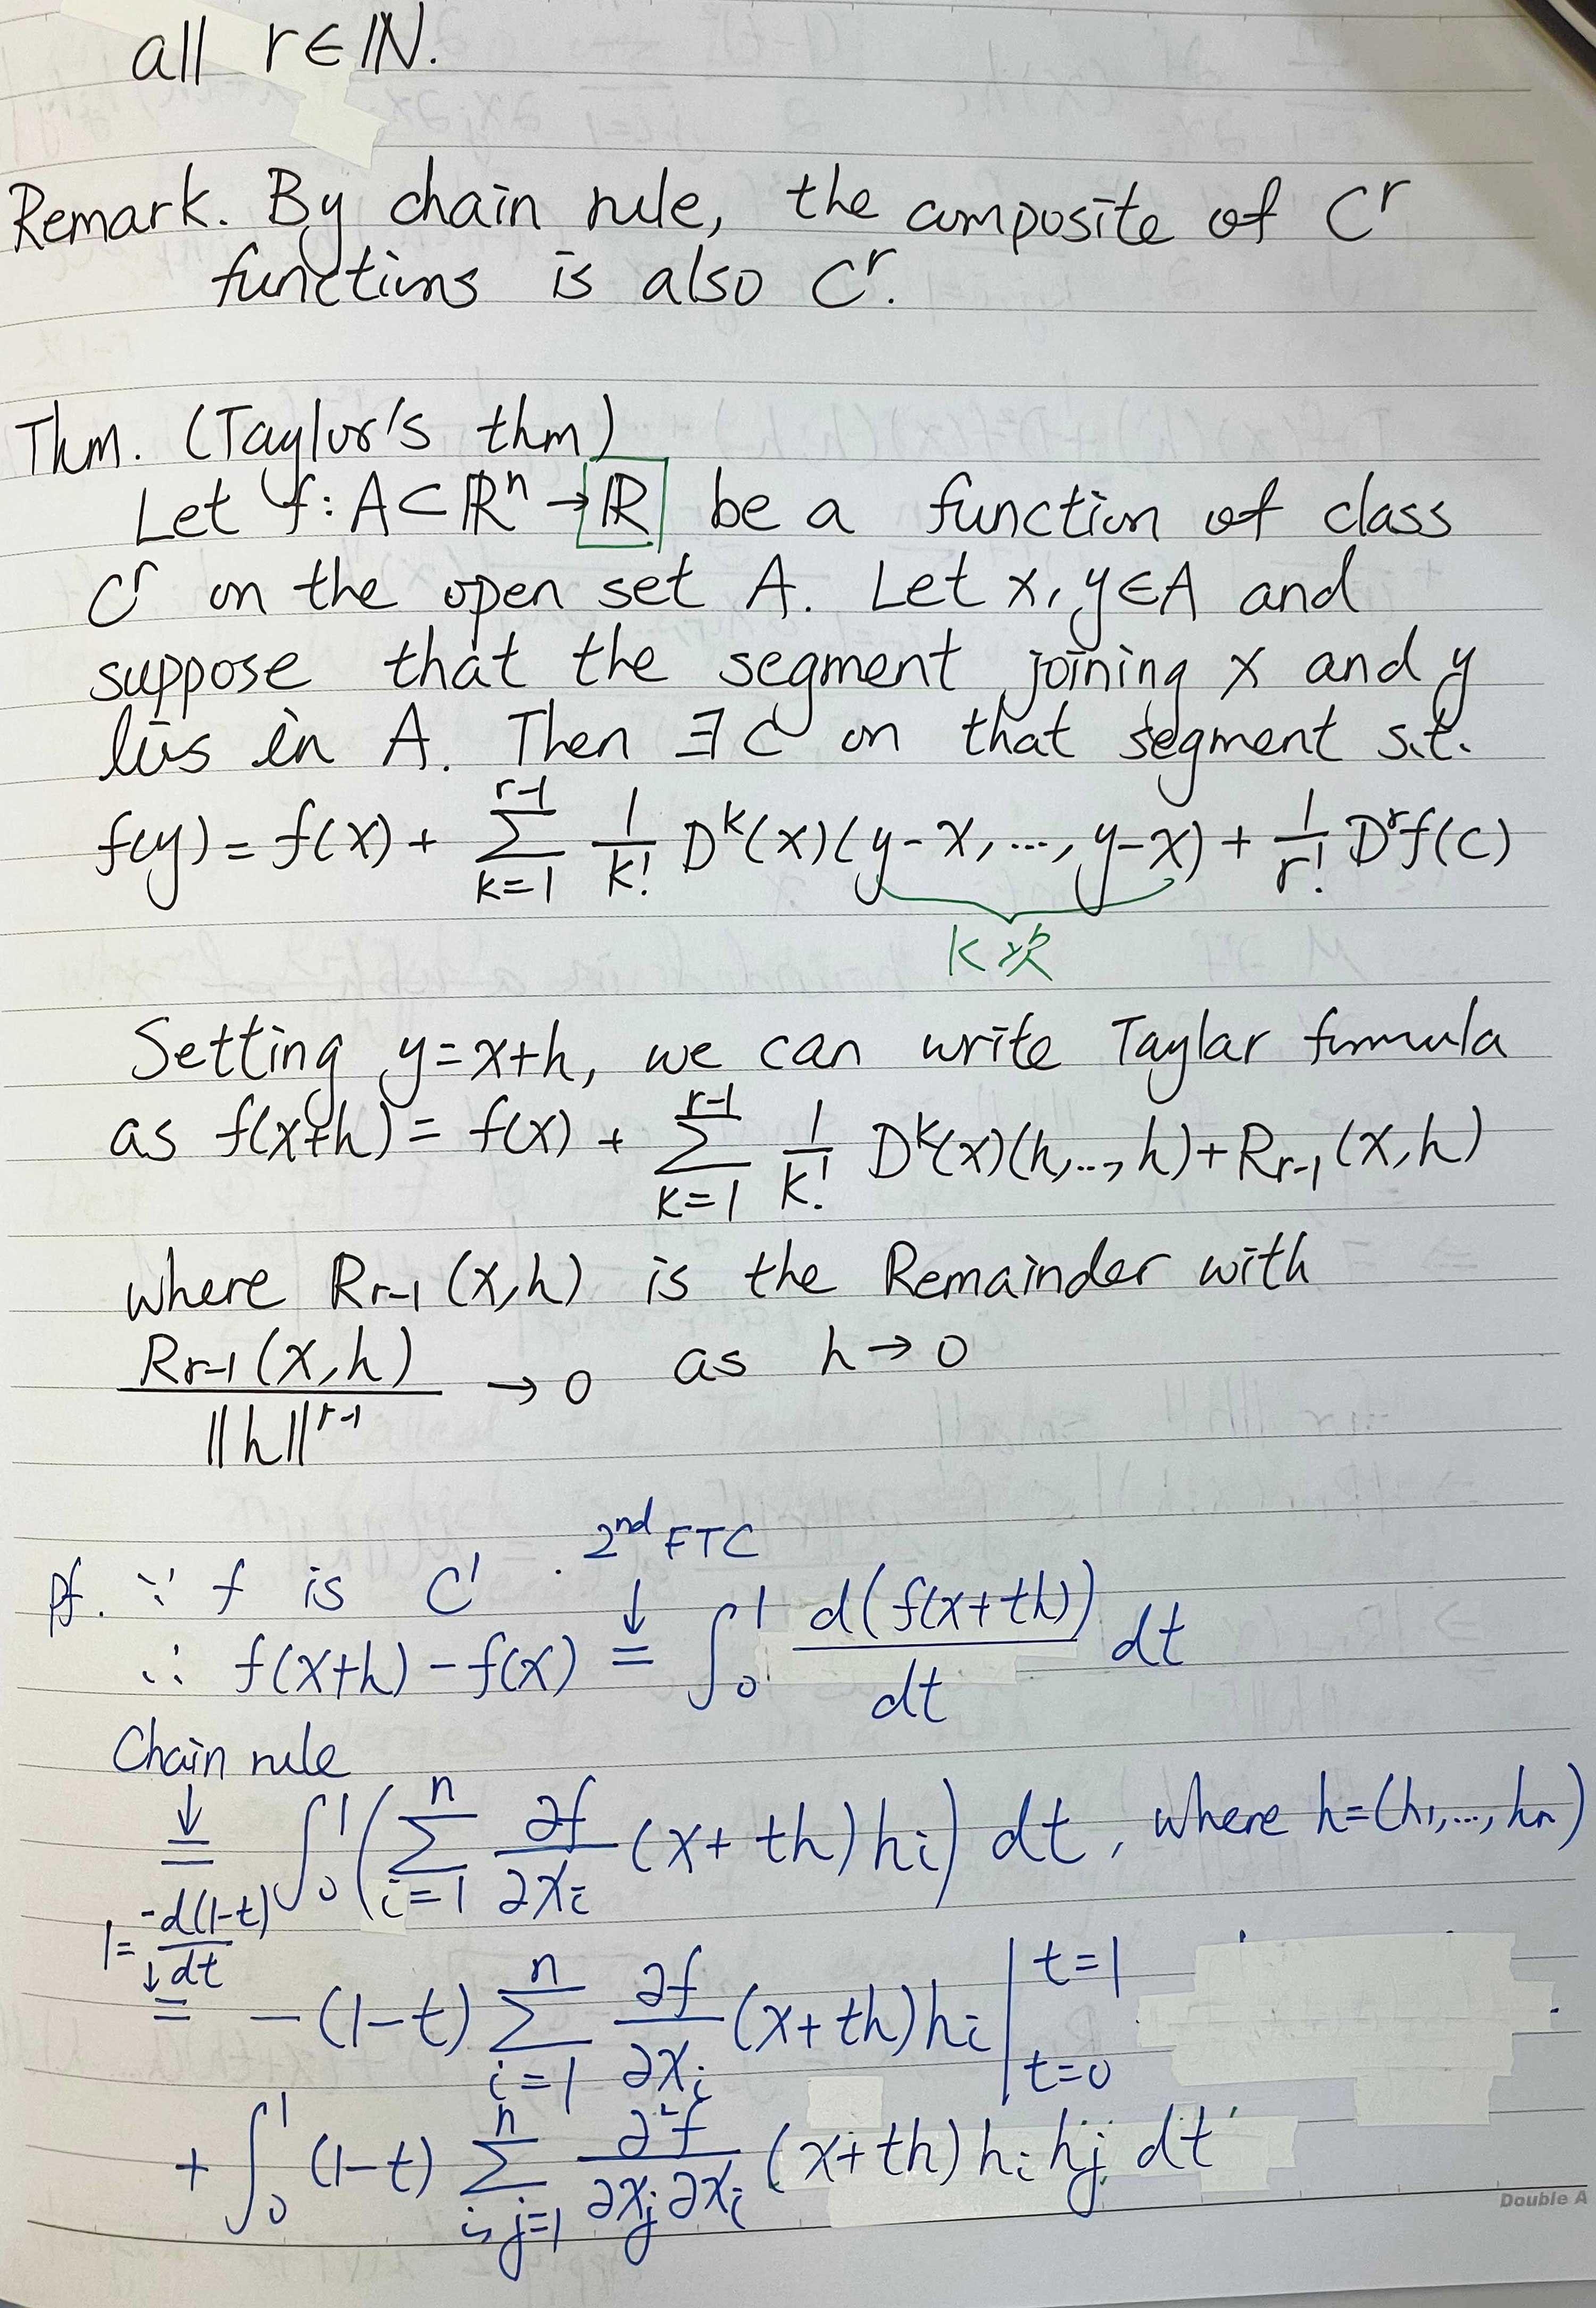 all r∈ℕ.
Remark. By chain rule, the composite of Cʳ
functions is also Cʳ.
Thm. (Taylor's thm)
Let f: A⊂ℝⁿ→ℝ be a function of class
Cʳ on the open set A. Let x, y∈A and
suppose that the segment joining x and y
lies in A. Then ∃ C on that segment s.t.
f(y) = f(x) + \sum_{k=1}^{r-1} \frac{1}{k!} D^k(x)(y-x, ..., y-x) + \frac{1}{r!} D^r f(c)
k次
Setting y=x+h, we can write Taylar formula
as f(x+h) = f(x) + \sum_{k=1}^{r-1} \frac{1}{k!} D^k(x)(h,..., h) + R_{r-1}(x,h)
where R_{r-1}(x,h) is the Remainder with
\frac{R_{r-1}(x,h)}{||h||^{r-1}} → 0 as h→0
2nd FTC
pf. ∵ f is C¹
∴ f(x+h) - f(x) = \int_0^1 \frac{d(f(x+th))}{dt} dt
Chain rule
↓
= \int_0^1 (\sum_{i=1}^{n} \frac{∂f}{∂x_i}(x+th)h_i) dt, where h=(h_1,..., h_n)
1=\frac{-d(1-t)}{dt}
↓
= -(1-t) \sum_{i=1}^{n} \frac{∂f}{∂x_i}(x+th)h_i |_{t=0}^{t=1}
+ \int_0^1 (1-t) \sum_{i,j=1}^{n} \frac{∂²f}{∂x_j ∂x_i}(x+th) h_i h_j dt
Double A